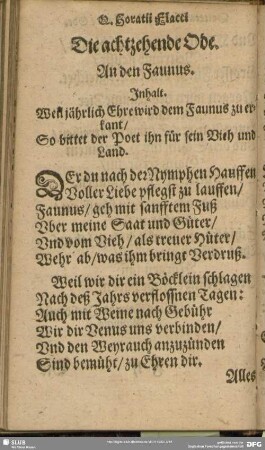 Q. Horatii Flacci
Die achtzehende Ode.
An den Faunus.
Inhalt.
Weil jährlich Ehre wird dem Faunus zu er
kant/
So bittet der Poet ihn für sein Vieh und
Land.
DEr du nach der Nymphen Hauffen
Voller Liebe pflegst zu lauffen/
Faunus/ geh mit sanfftem Fuß
Vber meine Saat und Güter/
Vnd vom Vieh/ als treuer Hüter/
Wehr ab/ was ihm bringt Verdruß.
Weil wir dir ein Böcklein schlagen
Nach deß Jahrs verfloßnen Tagen:
Auch mit Weine nach Gebühr
Wir dir Venus uns verbinden/
Vnd den Weyrauch anzuzünden
Sind bemüht/ zu Ehren dir.
Alles
SLUB
DFG